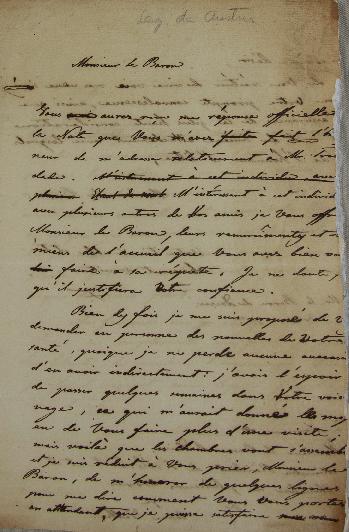 Monsieur le Baron
Vous aurez reçu ma réponse officielle
la Note que Vous m'avez fait l'hon
neur de m'adresser relativement à Mr
dale. M'intéressant à cet individu avec
plusieurs M'intéressant à cet individ
avec plusieurs autres de Vos amis je Vous offr
Monsieur le Baron, leurs remerciments et
miens de l'accueil que Vous avez bien vo
faire à sa requête. Je ne doute p
qu'il justifiera Votre confiance.
Bien des fois je me suis proposé de V
demander en personne des nouvelles de Votre
santé, quoique je ne perde aucune occasion
d'en avoir indirectement; j'avois l'espoir
de passer quelques semaines dans Votre voisi
nage, ce qui m'aurait donné les moy
en de Vous faire plus d'une visite,
mais voilà que les chambres vont s'assemb
et je suis réduit à Vous prier, Monsieur le
Baron, de m'honorer de quelques lignes
pour me dire comment Vous Vous portez
en attendant, que je puisse satisfaire